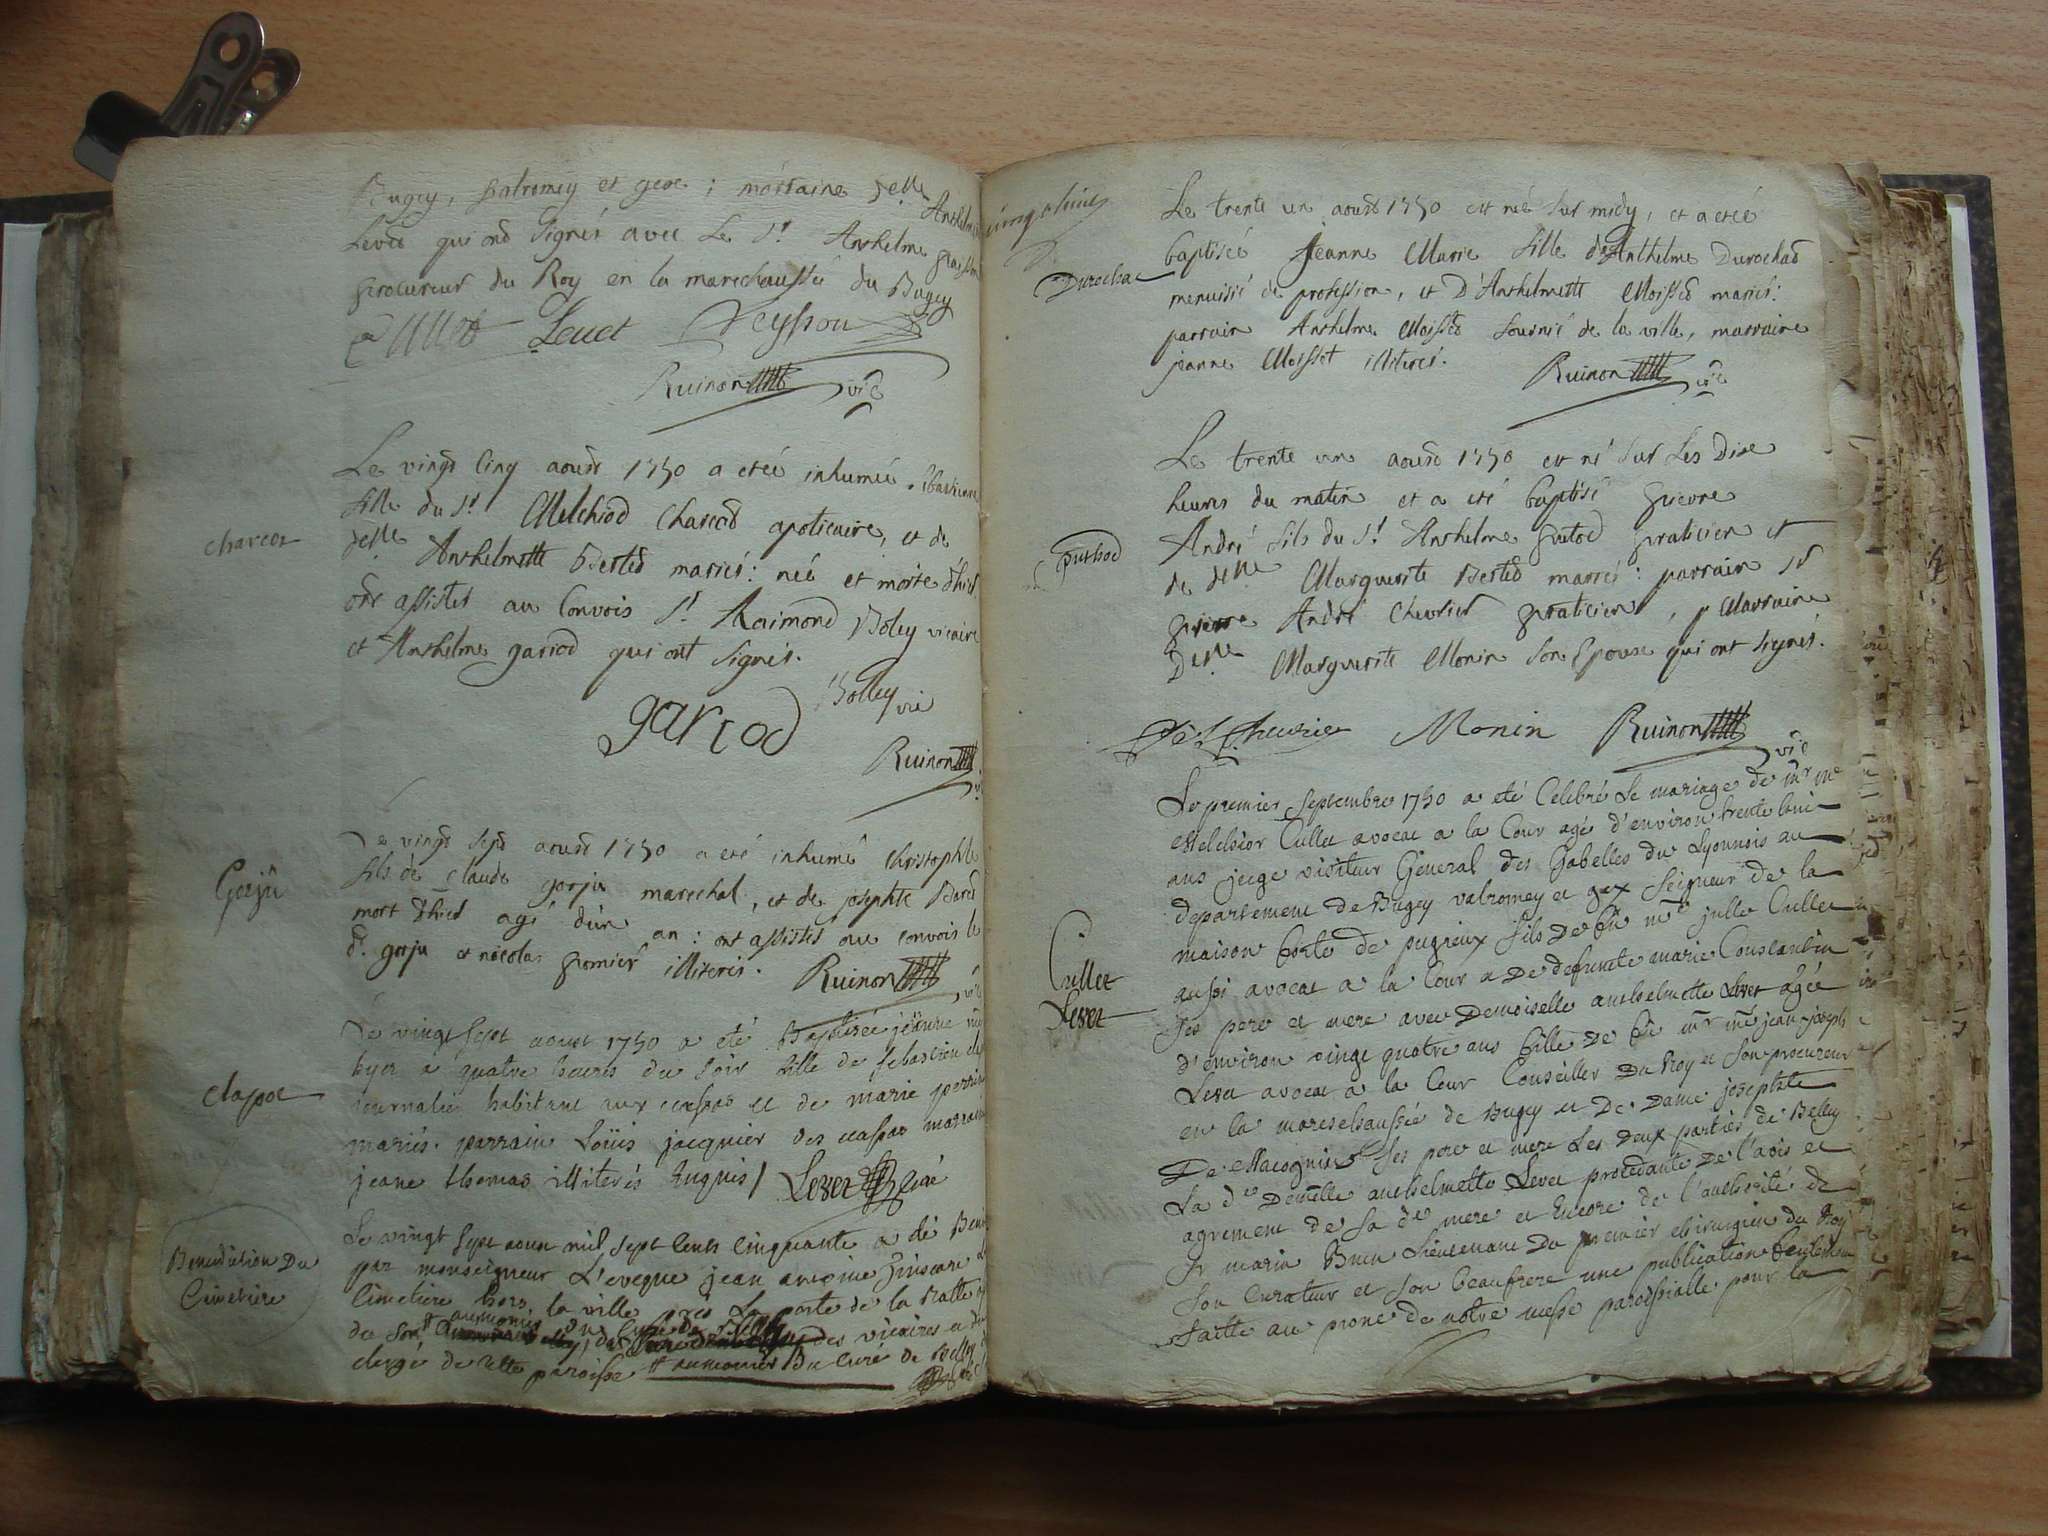 Bugey, Valromey et gex ; marraine delle Anthelm
Levet qui ont signés avec Le Sr Anthelme
procureur du Roy en la marechaussée du Bugey
Cullet Levet Peysson
Ruinon vic
charcot
Le vingt cinq aoust 1750 a etée inhumée
fille du Sr Melchiod Charcod apoticaire, et de
delle Anthelmette Berted mariés : née et morte d'hier
ont assistés au Convois Sr Raimond Boley vicaire
et Anthelme gariod qui ont signés.
gariod Bolley vic
Ruinon
Gorju
Le vingt sept aoust 1750 a eté inhumé christophle
fils de Claude gorju marechal, et de josephte
mort d'hier agé d'un an : ont assistés au convois le
dt. gorju et nicolas illiterés. Ruinon
Clapot
Le vingt sept aoust 1750 a eté Baptisée jeanne née
hyer a quatre heures du soir fille de sebastien
journalier habitant aux ecassas et de marie
mariés. parrain Loüis jacquier des ecassas marraine
jeane thomas illiterés Enquis / Levet Curé
Benediction Du
Cimetiere
Le vingt sept aoust mil sept cents cinquante a eté
par monseigneur L'eveque jean antoine
Cimetiere hors la ville la porte de la
aumonier
du son des vicaires et du
clergé de cette paroisse aumonier Du Curé de Belley
Durochat
Le trente un aoust 1750 est née sur midy, et a etée
baptisée Jeanne Marie fille d'Anthelme Durochad
menuisié de profession, et D'Anthelmette Moissed mariés :
parrain Anthelme Moissed fournié de la ville, marraine
jeanne Moisset illiterés.
Ruinon vic
puthod
Le trente un aoust 1750 est né sur Les Dixe
heures du matin et a eté baptisé pierre
André fils du Sr Anthelme putod praticien et
de delle Marguerite Berted mariés : parrain Sr
pierre André Chevrier praticien, Marraine
Delle Marguerite Monin Son Epouse qui ont signés.
Chevrier Monin Ruinon vic
Cullet
Levet
Le premier septembre 1750 a eté Celebré Le mariage de mr me
Melchior Cullet avocat a la Cour agé d'environ trente huit
ans juge visiteur General des Gabelles du Lyonnois au
departement de Bugey valromey et gex seigneur de la
maison forte de pugieux fils de fû me julle Cullet
aussi avocat a la Cour et De defunte marie Constantin
ses pere et mere avec Demoiselle anthelmette Levet agée
d'environ vingt quatre ans fille De fû mr me jean joseph
Levet avocat a la Cour Conseiller Du Roy et son procureur
en la marechaussée de Bugey et De Dame josephte
De Macognin ses pere et mere Les deux parties de Belley
La dte Demelle anthelmette Levet procedante De l'avis et
agrement de sa dte mere et Encore de l'authorité de
Sr marin Lieutenant Du premier chirurgien du Roy
son curateur et son beaufrere une publication seulement
faitte au prone de notre messe paroissialle pour la